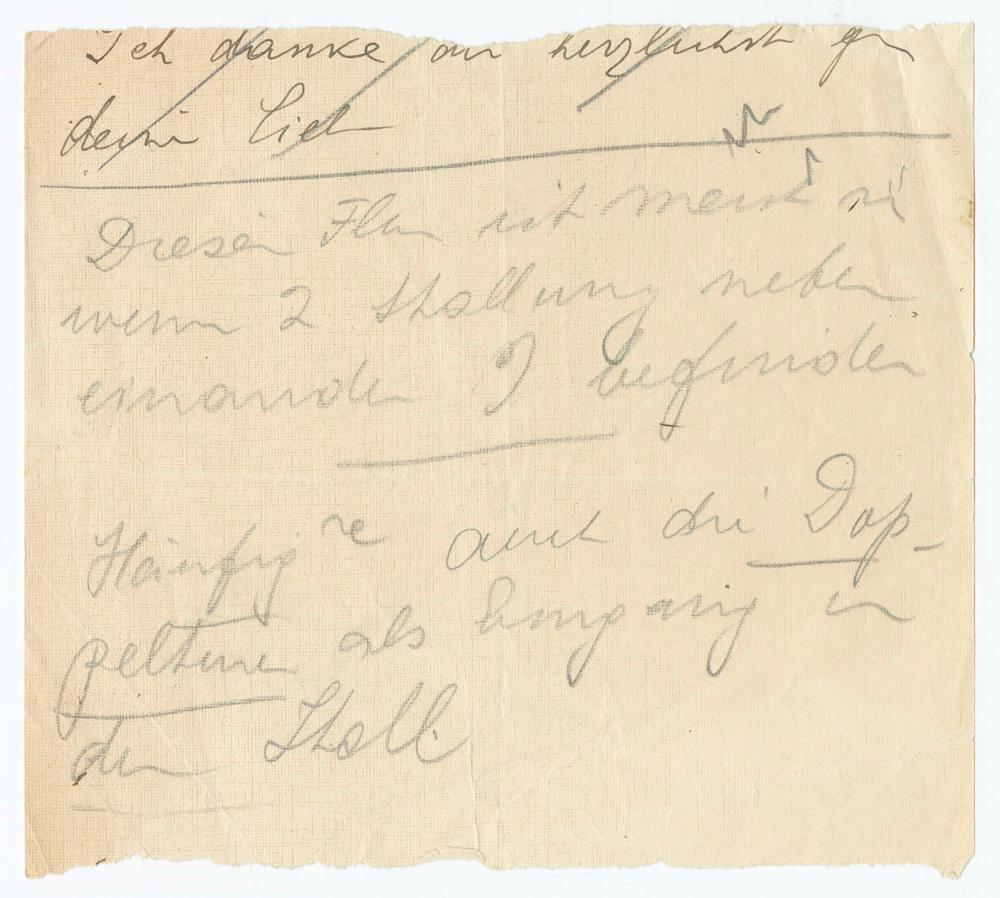 Ich danke dir herzlichst für
deine Lieb
Dieser Flur ist meist
wenn 2 Stallung neben
einander befinden
Häufig auch die Dop-
peltüren als Eingang in
den Stall